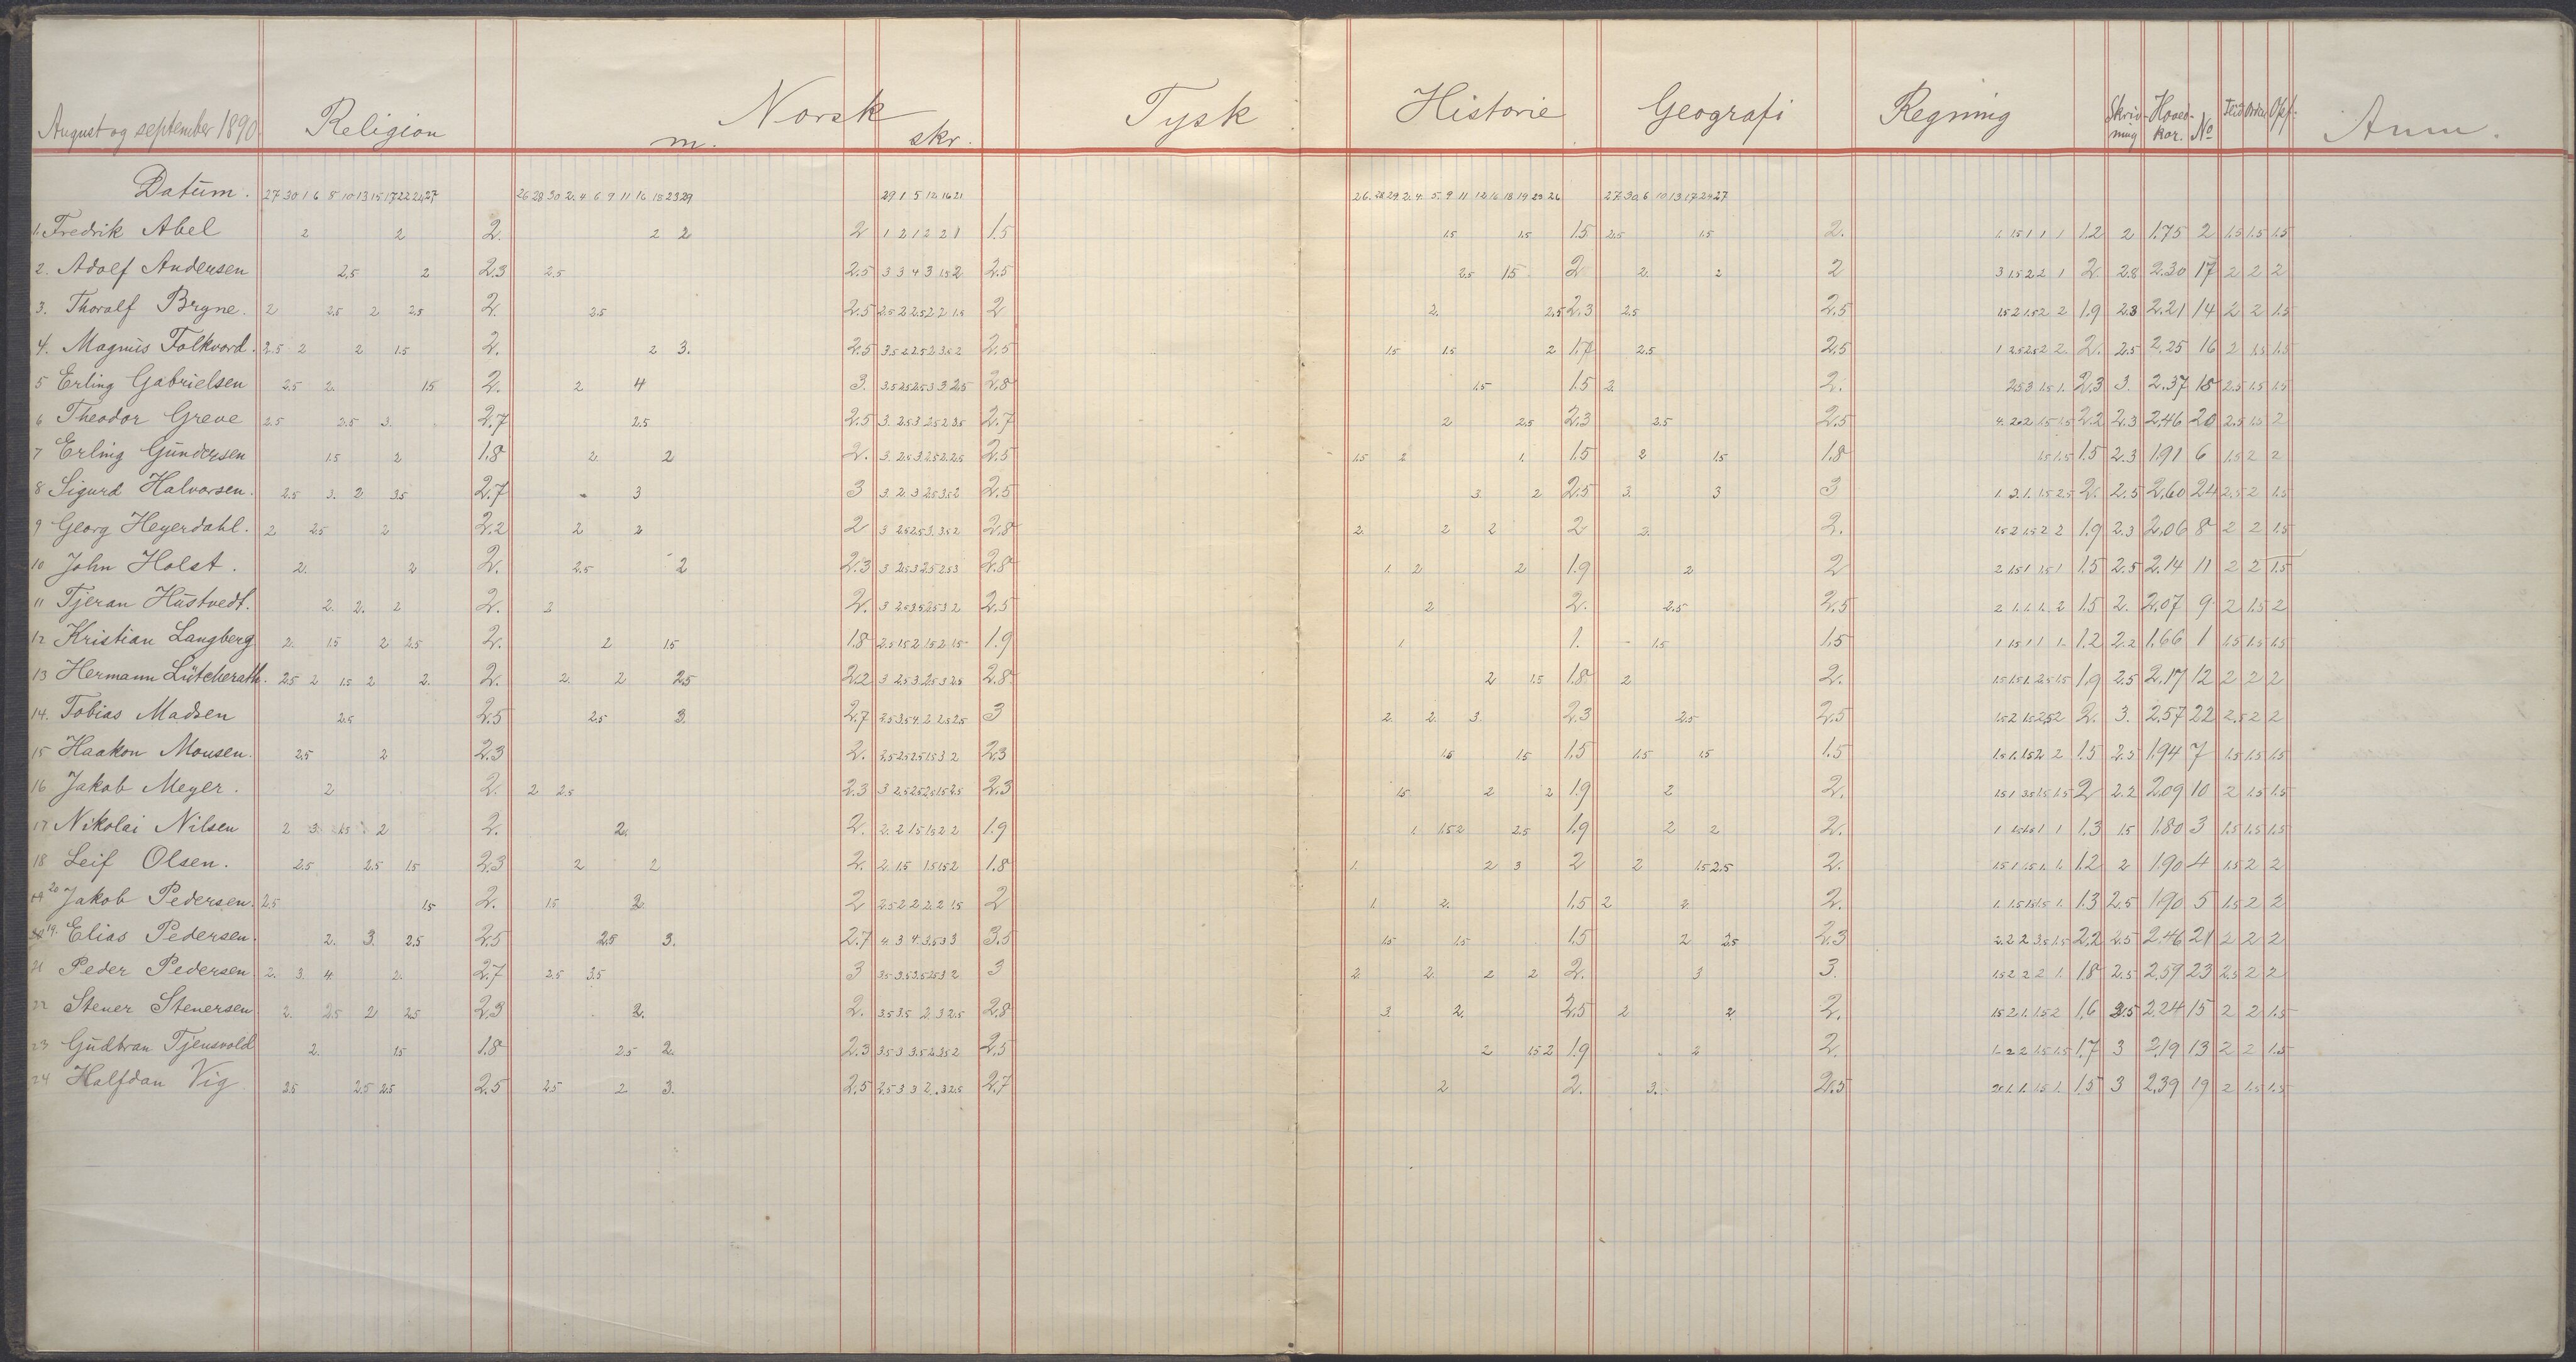 August og september 1890. Religion Norsk Tysk Historie Geografi Regning Skriv- Hoved- Flid Orden Opf. Anm.
m. skr. ning kar. No
Datum. 27 30 1 6 8 10 13 15 17 22 24 27 26 28 30 2 4 6 9 11 16 18 23 29 29 1 5 12 16 21 26 28 29 2 4 5 9 11 12 16 18 19 23 26 27 30 6 10 13 17 24 27
1. Fredrik Abel 2 2 2. 2 2 2 1 2 1 2 2 1 1.5 1.5 1.5 1.5 2.5 1.5 2. 1. 1.5 1 1 1 1.2 2 1.75 2 1.5 1.5 1.5
2. Adolf Andersen 2.5 2 2.3 2.5 2.5 3 3 4 3 1.5 2 2.5 2.5 1.5 2 2. 2 2 3 1.5 2 2 1 2. 2.8 2.30 17 2 2 2
3. Thoralf Bryne. 2 2.5 2 2.5 2. 2.5 2.5 2.5 2 2.5 2 2 1.5 2 2. 2.5 2.3 2.5 2.5 1.5 2 1.5 2 2 1.9 2.3 2.21 14 2 2 1.5
4. Magnus Folkvord. 2.5 2 2 1.5 2. 2 3. 2.5 3.5 2 2.5 2 3.5 2 2.5 1.5 1.5 2 1.7 2.5 2.5 1 2.5 2.5 2 2. 2. 2.5 2.25 16 2 1.5 1.5
5 Erling Gabrielsen 2.5 2. 1.5 2. 2 4 3. 3.5 2.5 2.5 3 3 2.5 2.8 1.5 1.5 2. 2. 2.5 3 1.5 1. 2.3 3. 2.37 18 2.5 1.5 1.5
6 Theodor Greve 2.5 2.5 3. 2.7 2.5 2.5 3. 2.5 3 2.5 2 3.5 2.7 2 2.5 2.3 2.5 2.5 4. 2 2 1.5 1.5 2.2 2.3 2.46 20 2.5 1.5 2
7 Erling Gundersen 1.5 2 1.8 2. 2 2. 3. 2.5 3. 2.5 2. 2.5 2.5 1.5 2 1. 1.5 2 1.5 1.8 1.5 1.5 1.5 2.3 1.91 6 1.5 2 2
8 Sigurd Halvorsen. 2.5 3. 2 3.5 2.7 3 3 3. 2. 3 2.5 3.5 2 2.5 3. 2 2.5 3. 3 3 1. 3. 1. 1.5 2.5 2. 2.5 2.60 24 2.5 2 1.5
9 Georg Heyerdahl. 2 2.5 2 2.2 2 2 2 3 2.5 2.5 3. 3.5 2 2.8 2. 2 2 2 2. 2. 1.5 2 1.5 2 2 1.9 2.3 2.06 8 2 2 1.5
10 John Holst. 2. 2 2. 2.5 2 2.3 3 2.5 3 2.5 2.5 3 2.8 1. 2 2 1.9 2 2 2 1.5 1 1.5 1 1.5 2.5 2.14 11 2 2 1.5
11 Tjeran Hustvedt. 2. 2. 2 2. 2 2. 3 2.5 3.5 2.5 3 2 2.5 2 2. 2.5 2.5 2 1. 1. 1. 2 1.5 2. 2.07 9. 2 1.5 2
12 Kristian Langberg 2. 1.5 2 2.5 2. 2 1.5 1.8 2.5 1.5 2 1.5 2 1.5 1.9 1. 1. 1.5 1.5 1 1.5 1 1 1. 1.2 2.2 1.66 1 1.5 1.5 1.5
13 Hermann Lütcherath. 2.5 2 1.5 2 2. 2. 2. 2 2.5 2.2 3 2.5 3. 2.5 3 2.5 2.8 2 1.5 1.8 2 2. 1.5 1.5 1. 2.5 1.5 1.9 2.5 2.17 12 2 2 2
14. Tobias Madsen 2.5 2.5 2.5 3. 2.7 3.5 3.5 4. 2 2.5 2.5 3 2. 2. 3. 2.3 2.5 2.5 1.5 2 1.5 2.5 2 2. 3. 2.57 22 2.5 2 2
15 Haakon Monsen. 2.5 2 2.3 2. 2.5 2.5 2.5 1.5 3 2 2.3 1.5 1.5 1.5 1.5 1.5 1.5 1.5 1. 1.5 2 2 1.5 2.5 1.94 7 1.5 1.5 1.5
16 Jakob Meyer. 2 2. 2 2.5 2.3 3 2.5 2.5 2.5 1.5 2.5 2.3 1.5 2 2 1.9 2 2. 1.5 1 3.5 1.5 1.5 2 2.2 2.09 10 2 1.5 1.5
17 Nikolai Nilsen 2 3. 1.5 2 2. 2. 2. 2. 2 1.5 1.5 2 2 1.9 1 1.5 2 2.5 1.9 2 2 2. 1 1.5 1.5 1 1 1.3 1.5 1.80 3 1.5 1.5 1.5
18 Leif Olsen. 2.5 2.5 1.5 2.3 2 2 2. 2. 1.5 1.5 1.5 2 1.8 1. 2 3 2 2 1.5 2.5 2. 1.5 1. 1.5 1. 1. 1.2 2 1.90 4 1.5 2 2
19 20 Jakob Pedersen. 2.5 1.5 2. 1.5 2. 2 2.5 2 2 2. 2 1.5 2 1. 2. 1.5 2 2. 2. 1. 1.5 1.5 1.5 1. 1.3 2.5 1.90 5 1.5 2 2
19. Elias Pedersen. 2. 3. 2.5 2.5 2.5 3. 2.7 4. 3 4. 3.5 3 3 3.5 1.5 1.5 1.5 2 2.5 2.3 2. 2 2 3.5 1.5 2.2 2.5 2.46 21 2 2 2
21 Peder Pedersen 2. 3. 4. 2. 2.7 2.5 3.5 3 3.5 3.5 2.5 2.5 3 2 3 2. 2. 2 2 2. 3 3. 1.5 2 2 2 1. 1.8 2.5 2.59 23 2.5 2 2
22 Stener Stenersen 2. 2.5 2 2.5 2.3 2. 2. 3.5 3.5 2. 3 2.5 2.8 3. 2. 2.5 2 2 2. 1.5 2 1. 1.5 2 1.6 3.5 2.24 15 2 2 1.5
23 Gudbran Tjensvold 2. 1.5 1.8 2.5 2. 2.3 3.5 3 3.5 2. 3.5 2 2.5 2 1.5 2 1.9 2 2. 1. 2 2 1.5 1.5 1.7 3 2.19 13 2 2 1.5
24 Halfdan Vig 2.5 2.5 2.5 2.5 2.5 2 3. 2.5 2.5 3 3 2. 3 2.5 2.7 2 2. 3. 2.5 2.5 1. 1. 1.5 1. 1.5 3 2.39 19 2 1.5 1.5